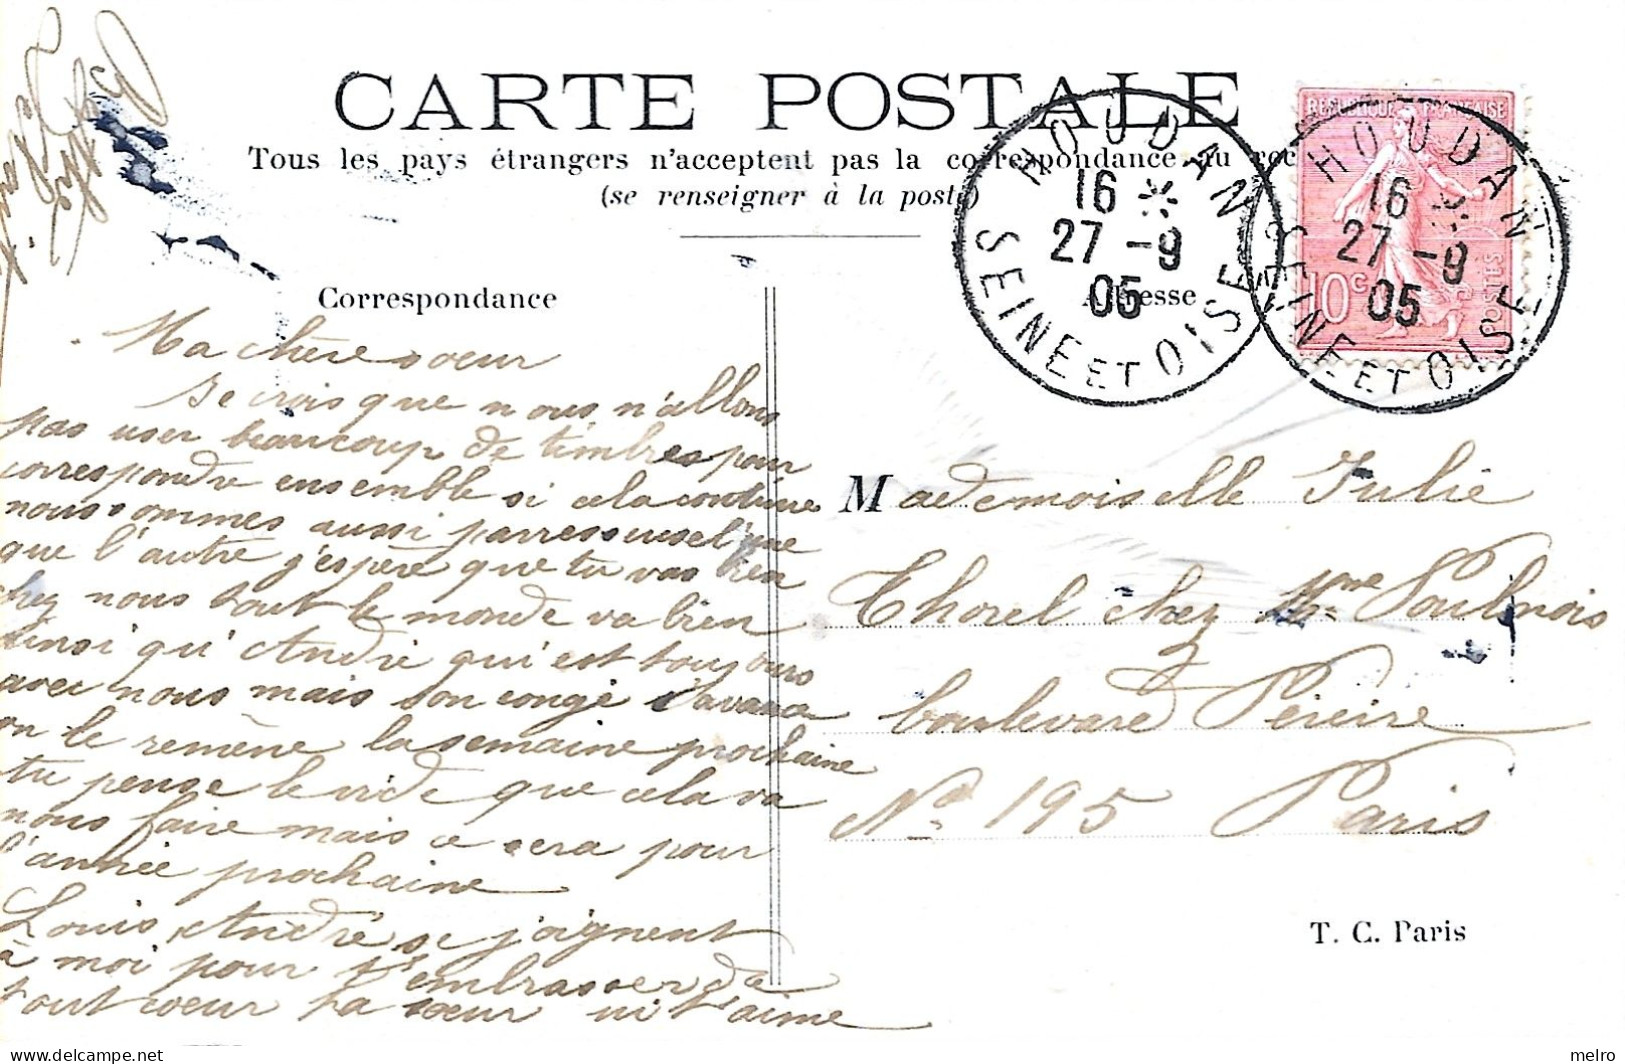 CARTE POSTALE
Tous les pays étrangers n'acceptent pas la correspondance au
(se renseigner à la poste)
HOUDAN
16
27 - 9
05
SEINE ET OISE
HOUDAN
16
27 - 9
05
SEINE ET OISE
REPUBLIQUE FRANÇAISE
10c
POSTES
Correspondance
Adresse
Ma chère soeur
Je crois que nous n'allons
pas user beaucoup de timbres pour
correspondre ensemble si cela continue
nous sommes aussi parresseuse l'une
que l'autre j'espère que tu vas bien
chez nous tout le monde va bien
ainsi qu'André qui est toujours
avec nous mais son congé s'avance
on le remène la semaine prochaine
tu pense le vide que cela va
nous faire mais ce sera pour
l'année prochaine
Louis, André se joignent
à moi pour t'embrasser de
tout coeur ta soeur qui t'aime
Mademoiselle Julie
Thorel chez Mme Poulnois
boulevard Péreire
No 195 Paris
T. C. Paris
delcampe.net
melro